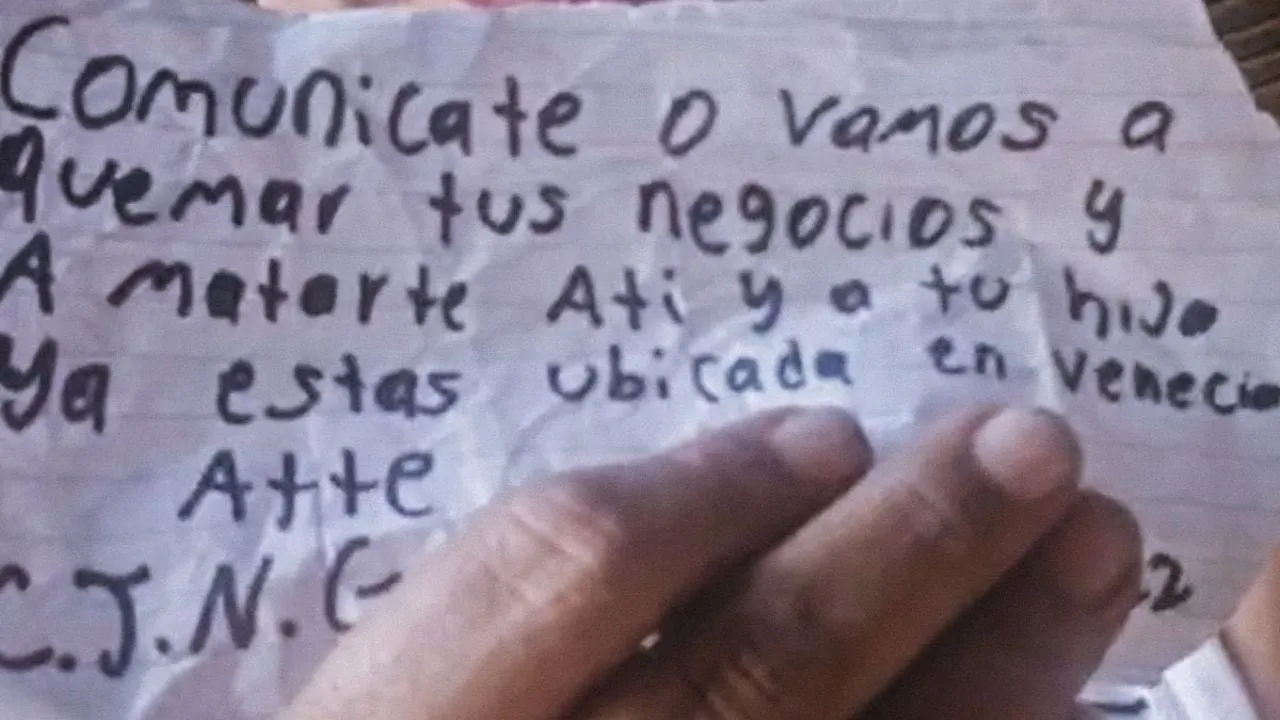 Comunicate o vamos a
quemar tus negocios y
A matarte Ati y a tu hijo
ya estas ubicada en venecia
Atte
C.J.N.G
2